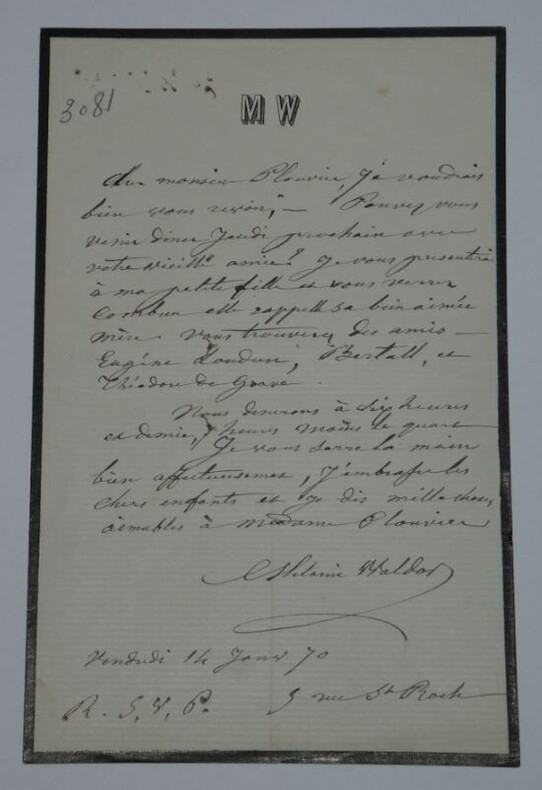 3081
M W
cher monsieur Plouvier, je voudrais
bien vous revoir, – Pouvez vous
venir diner Jeudi prochain avec
votre vieille amie? je vous presenterai
à ma petite fille et vous verrez
combien elle rappelle sa bien aimée
mère. vous trouverez des amis –
Eugène Loudun, Bertall, et
Théodore de Grave.
Nous dinerons à six heures
et demie, 7 heures moins le quart
Je vous serre la main
bien affectueusement, j'embrasse les
chers enfants et je dis mille choses
aimables à Madame Plouvier
Mélanie Waldor
Vendredi 14 Janv 70
R. S. V. P. 5 rue St Roch